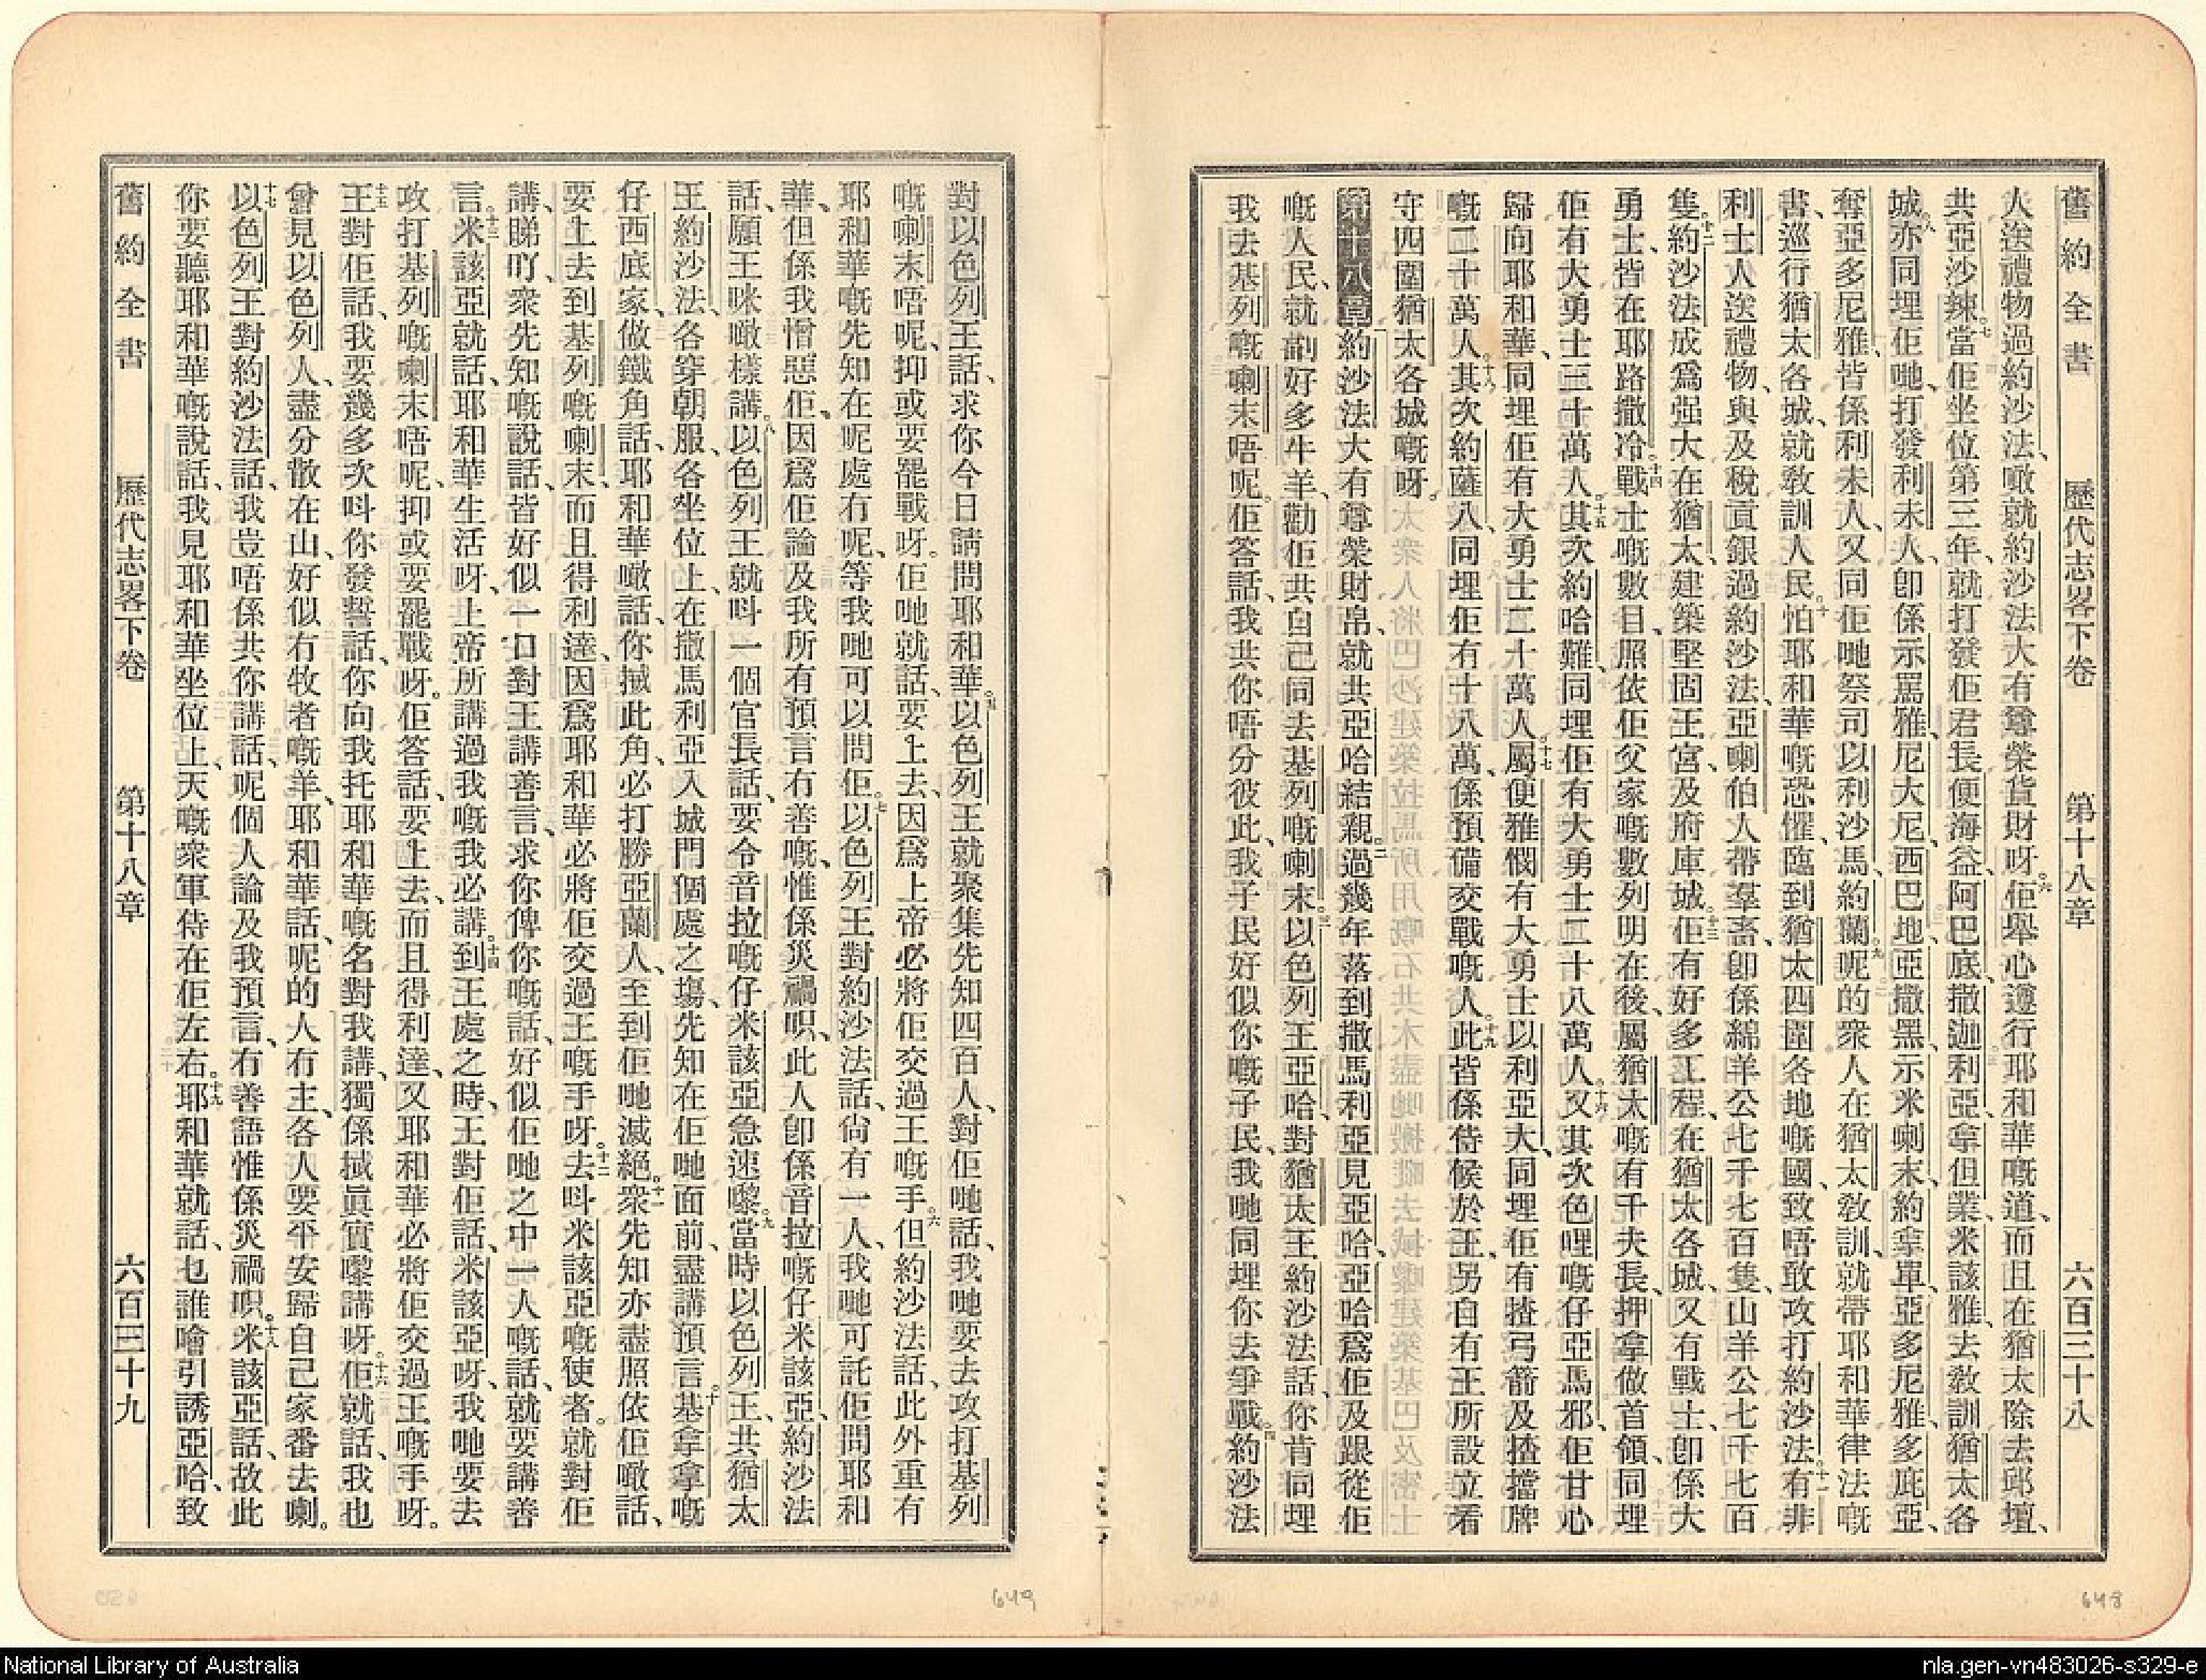 舊約全書 歷代志畧下卷 第十八章 六百三十八
人送禮物過約沙法、噉就約沙法大有尊榮貨財呀。六佢舉心遵行耶和華嘅道、而且在猶太除去邱壇、
共亞沙辣。七當佢坐位第三年、就打發佢君長便海益、阿巴底、撒迦利亞、拿但業、米該雅、去教訓猶太各
城、八亦同埋佢哋、打發利未人、卽係示罵雅、尼大尼、西巴地、亞撒黑、示米喇末、約拿單、亞多尼雅、多庇亞、
奪亞多尼雅、皆係利未人、又同佢哋祭司以利沙馬、約蘭。九呢的衆人在猶太教訓、就帶耶和華律法嘅
書、巡行猶太各城、就教訓人民。十怕耶和華嘅恐懼、臨到猶太四圍各地嘅國、致唔敢攻打約沙法。十一有非
利士人送禮物、與及稅貢銀過約沙法、亞喇伯人帶羣畜、卽係綿羊公七千七百隻、山羊公七千七百
隻。十二約沙法成爲强大、在猶太建築堅固王宮、及府庫城。十三佢有好多工程、在猶太各城、又有戰士、卽係大
勇士、皆在耶路撒冷。十四戰士嘅數目、照依佢父家嘅數列明在後、屬猶太嘅有千夫長、押拿做首領、同埋
佢有大勇士三十萬人。十五其次約哈難、同埋佢有大勇士二十八萬人。十六又其次色哩嘅仔亞馬邪、佢甘心
歸向耶和華、同埋佢有大勇士二十萬人。十七屬便雅憫有大勇士以利亞大、同埋佢有揸弓箭及揸擋牌
嘅二十萬人。十八其次約薩八、同埋佢有十八萬、係預備交戰嘅人。十九此皆係侍候於王、另自有王所設立看
守四圍猶太各城嘅呀。
第十八章 約沙法大有尊榮財帛、就共亞哈結親。二過幾年落到撒馬利亞見亞哈、亞哈爲佢及跟從佢
嘅人民、就劏好多牛羊、勸佢共自己同去基列嘅喇末。三以色列王亞哈、對猶太王約沙法話、你肯同埋
我去基列嘅喇末唔呢。佢答話、我共你唔分彼此、我子民好似你嘅子民、我哋同埋你去爭戰。四約沙法
舊約全書 歷代志畧下卷 第十八章 六百三十九
對以色列王話、求你今日請問耶和華。五以色列王就聚集先知四百人、對佢哋話、我哋要去攻打基列
嘅喇末唔呢、抑或要罷戰呀。佢哋就話、要上去、因爲上帝必將佢交過王嘅手。六但約沙法話、此外重有
耶和華嘅先知在呢處冇呢、等我哋可以問佢。七以色列王對約沙法話、尙有一人、我哋可託佢問耶和
華、但係我憎惡佢、因爲佢論及我所有預言冇善嘅、惟係災禍呮、此人卽係音拉嘅仔米該亞、約沙法
話、願王咪噉樣講。八以色列王就呌一個官長話、要令音拉嘅仔米該亞急速嚟。九當時以色列王、共猶太
王約沙法、各穿朝服、各坐位上、在撒馬利亞入城門個處之塲、先知在佢哋面前、盡講預言。十基拿拿嘅
仔西底家、做鐵角話、耶和華噉話、你揻此角、必打勝亞蘭人、至到佢哋滅絕。十一衆先知亦盡照依佢噉話、
要上去到基列嘅喇末、而且得利達、因爲耶和華必將佢交過王嘅手呀。十二去呌米該亞嘅使者。就對佢
講、睇吖、衆先知嘅說話、皆好似一口對王講善言、求你俾你嘅話、好似佢哋之中一人嘅話、就要講善
言。十三米該亞就話、耶和華生活呀、上帝所講過我嘅、我必講。十四到王處之時、王對佢話、米該亞呀、我哋要去
攻打基列嘅喇末唔呢、抑或要罷戰呀。佢答話、要上去、而且得利達、又耶和華必將佢交過王嘅手呀。
十五王對佢話、我要幾多次呌你發誓話、你向我托耶和華嘅名對我講、獨係揻眞實嚟講呀。十六佢就話、我也
曾見以色列人、盡分散在山、好似冇牧者嘅羊、耶和華話、呢的人冇主、各人要平安歸自己家番去喇。
十七以色列王對約沙法話、我豈唔係共你講話、呢個人論及我預言、冇善語惟係災禍呮。十八米該亞話、故此
你要聽耶和華嘅說話、我見耶和華坐位上、天嘅衆軍侍在佢左右。十九耶和華就話、乜誰噲引誘亞哈、致
648
649
National Library of Australia
nla.gen-vn483026-s329-e